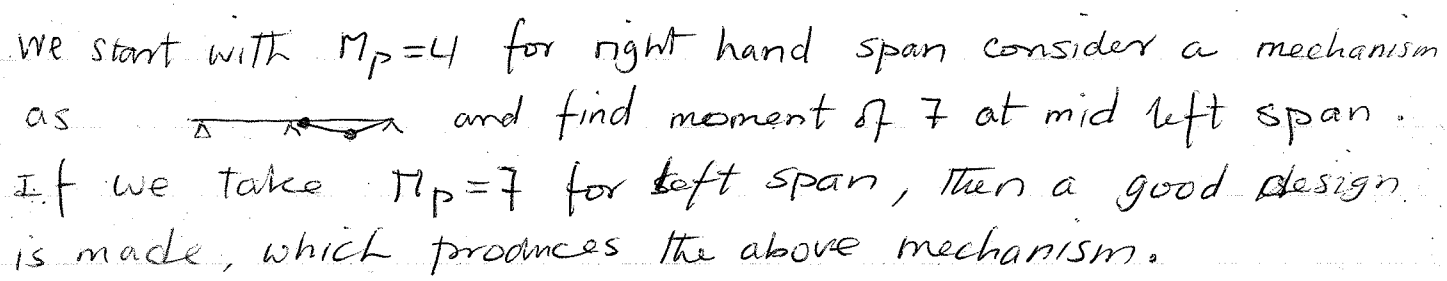 We start with Mp=4 for right hand span consider a mechanism
as and find moment of 7 at mid left span.
If we take Mp=7 for left span, then a good design
is made, which produces the above mechanism.